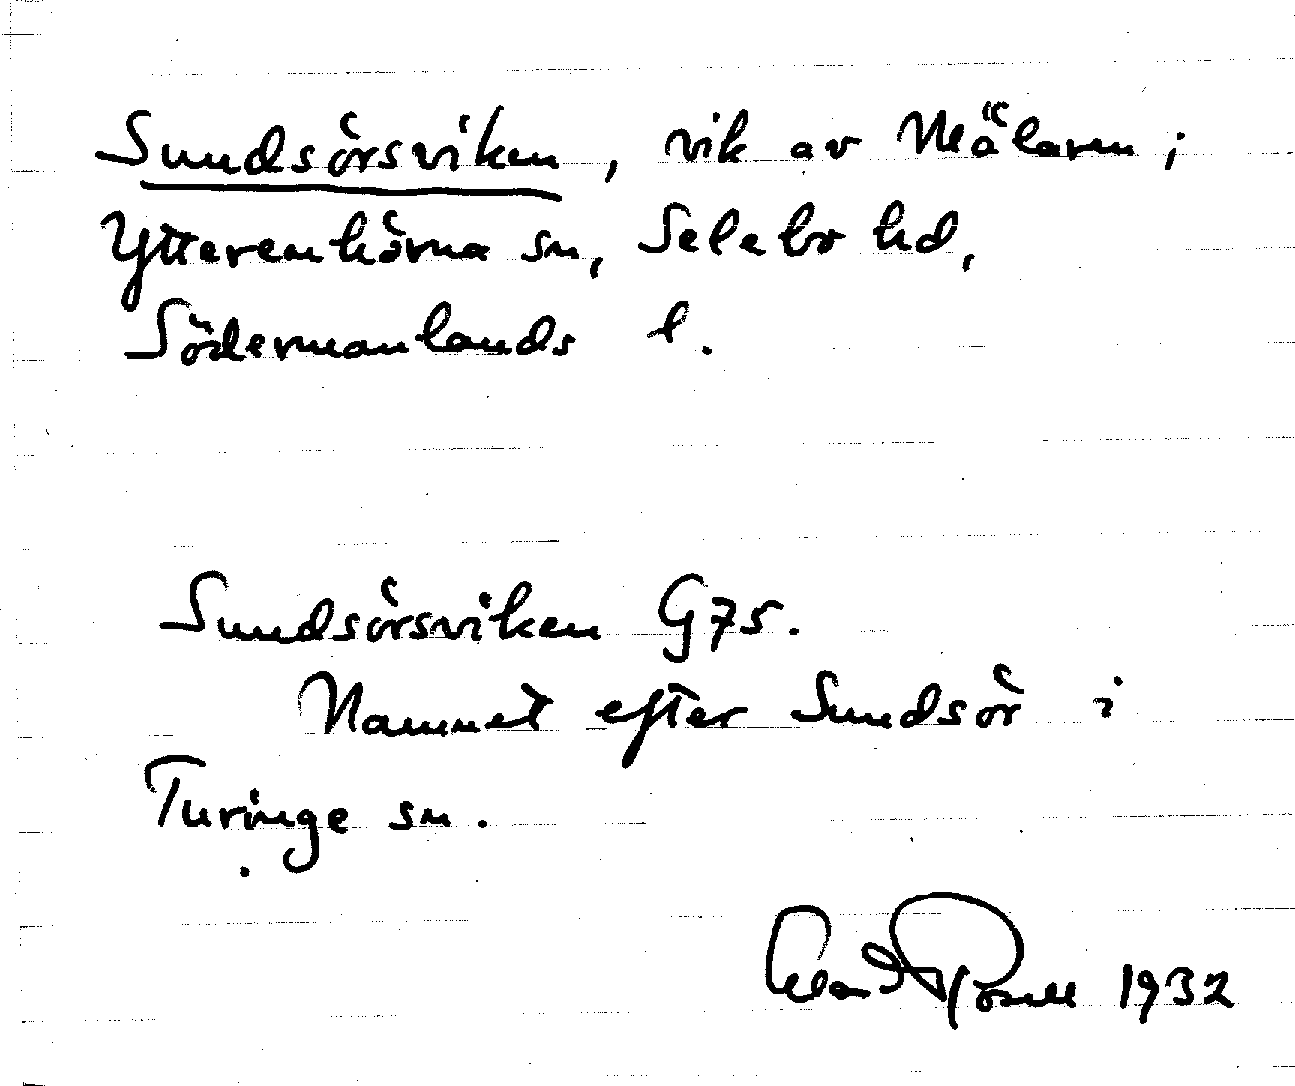 Sundsörsviken, vik av Mälaren;
Ytterenhörna sn, Selebo hd,
Södermanlands l.
Sundsörsviken G75.
Namnet efter Sundsör i
Turinge sn.
1932